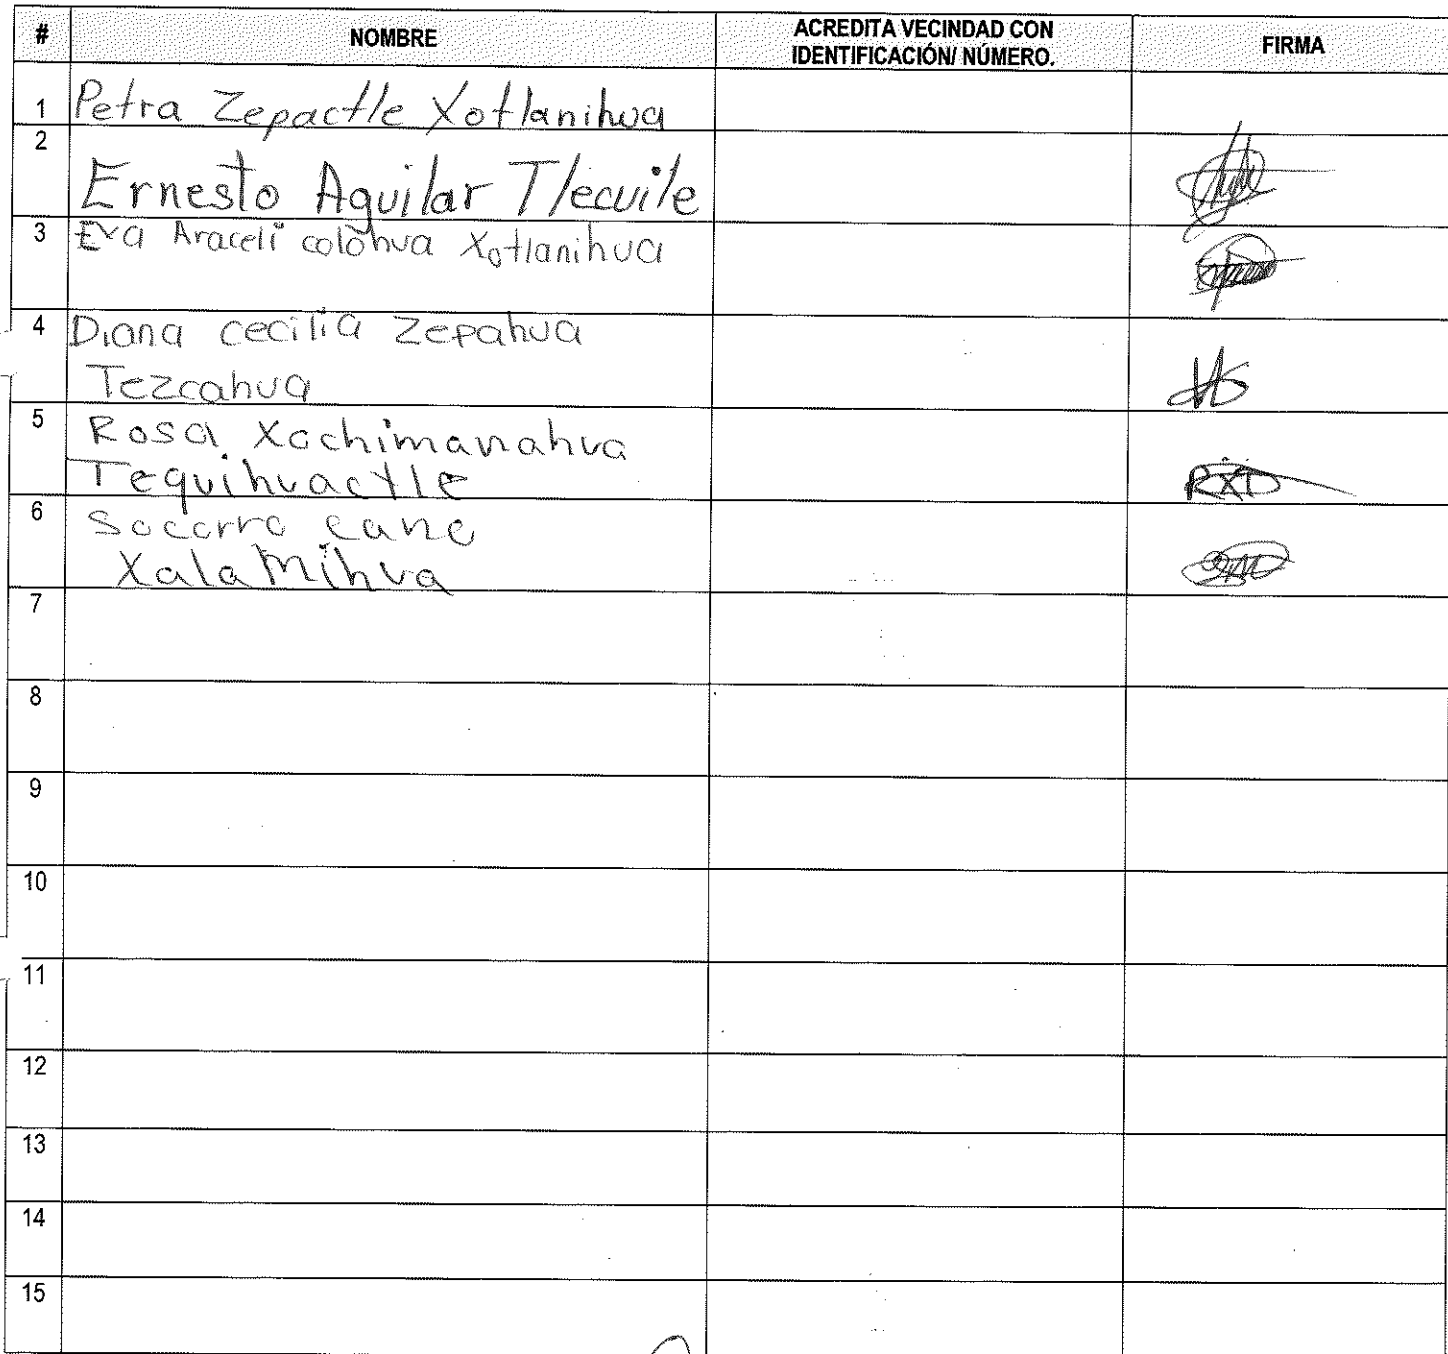 # NOMBRE ACREDITA VECINDAD CON IDENTIFICACIÓN/ NÚMERO. FIRMA
1 Petra Zepactle Xotlanihua
2 Ernesto Aguilar Tlecuile
3 Eva Araceli colohua Xotlanihua
4 Diana cecilia Zepahua
Tezcahua
5 Rosa Xochimanahua
Tequihuactle RXT
6 Socorro cano
XalaMihua
7
8
9
10
11
12
13
14
15